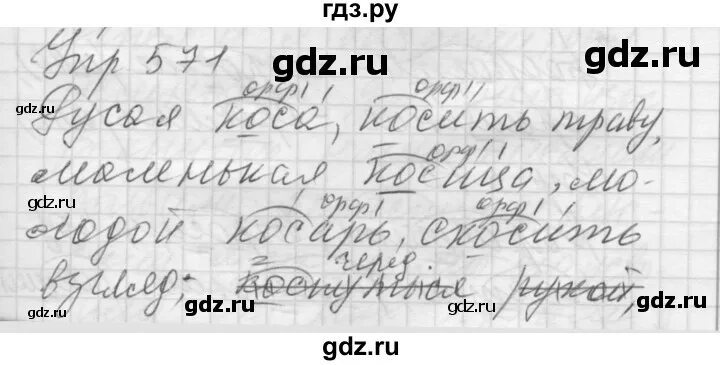 гдз.ру
Упр 571
gdz.ru
gdz.ru
орф1
орф11
gdz.ru
Русая коса, косить траву,
орф11
маленькая косица, мо-
gdz.ru
gdz.ru
орф1
орф1
лодой косарь, скосить
черед.
взгляд; коснуться рукой,
gdz.ru
gdz.ru
gdz.ru